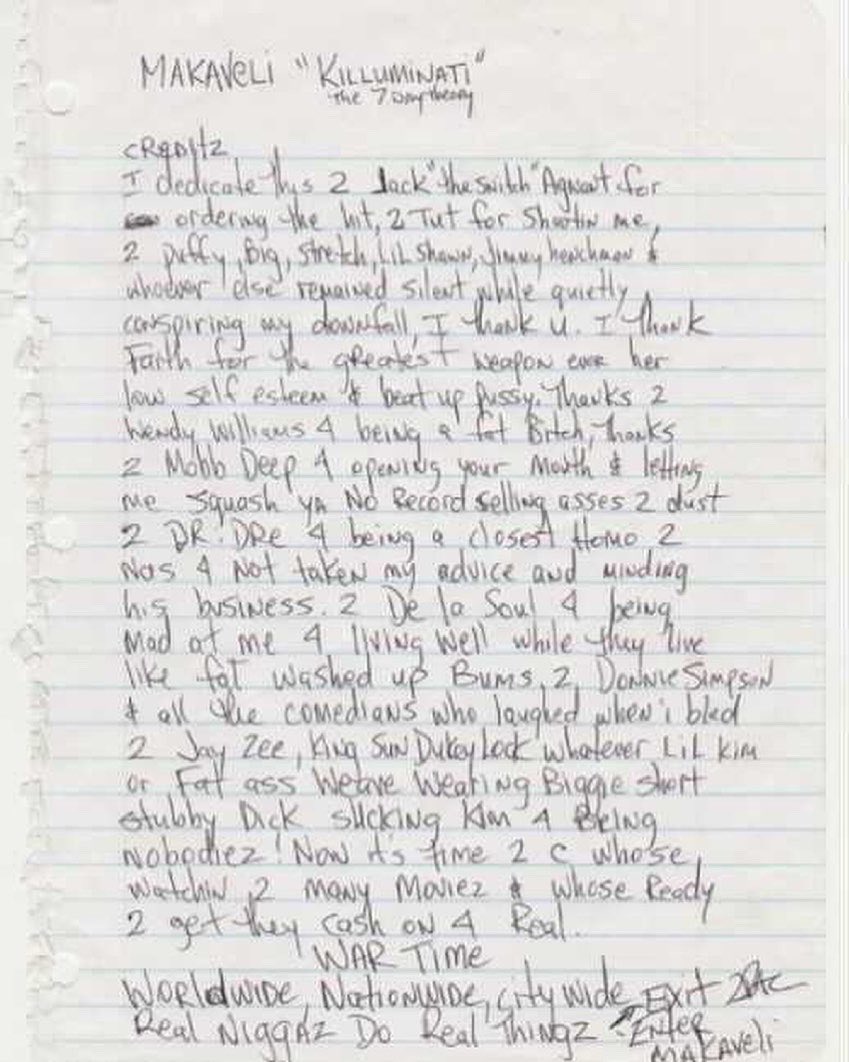 MAKAVELI "KILLUMINATI"
the 7 Day theory
CREDITZ
I dedicate this 2 Jack "the switch" Agneat for
ordering the hit, 2 Tut for Shootin me,
2 Puffy, Big, Stretch, LiL Shawn, Jimmy henchman &
whoever else remained silent while quietly
conspiring my downfall, I thank U. I thank
Faith for the greatest weapon ever her
low self esteem & beat up pussy. Thanks 2
Wendy Williams 4 being a fat Bitch, Thanks
2 Mobb Deep 4 opening your Mouth & letting
me squash ya No Record selling asses 2 dust
2 DR. DRE 4 being a closest Homo 2
Nas 4 Not taken my advice and minding
his business. 2 De la Soul 4 being
Mad at me 4 living well while they live
like fat washed up Bums, 2 DONNIE SIMPSON
& all the comedians who laughed when i bled
2 Jay Zee, King Sun Dukey Lock whatever LiL Kim
or Fat ass Weave Wearing Biggie short
stubby Dick sucking Kim 4 Being
Nobodiez! Now it's time 2 C whose
Watchin 2 many Moviez & whose Ready
2 get they cash on 4 Real.
WAR TIME
WORLdWIDE, NATIONWIDE, city wide, Exit 2PAC
Real NiggAz Do Real Thingz Enter
MAKAVELi